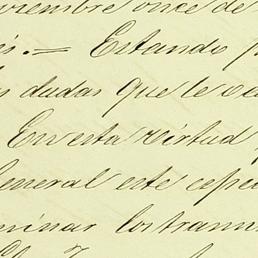 viembre once de
s.= Estando p
s dudas que le oc
En esta virtud
General este espe
minar los tramı